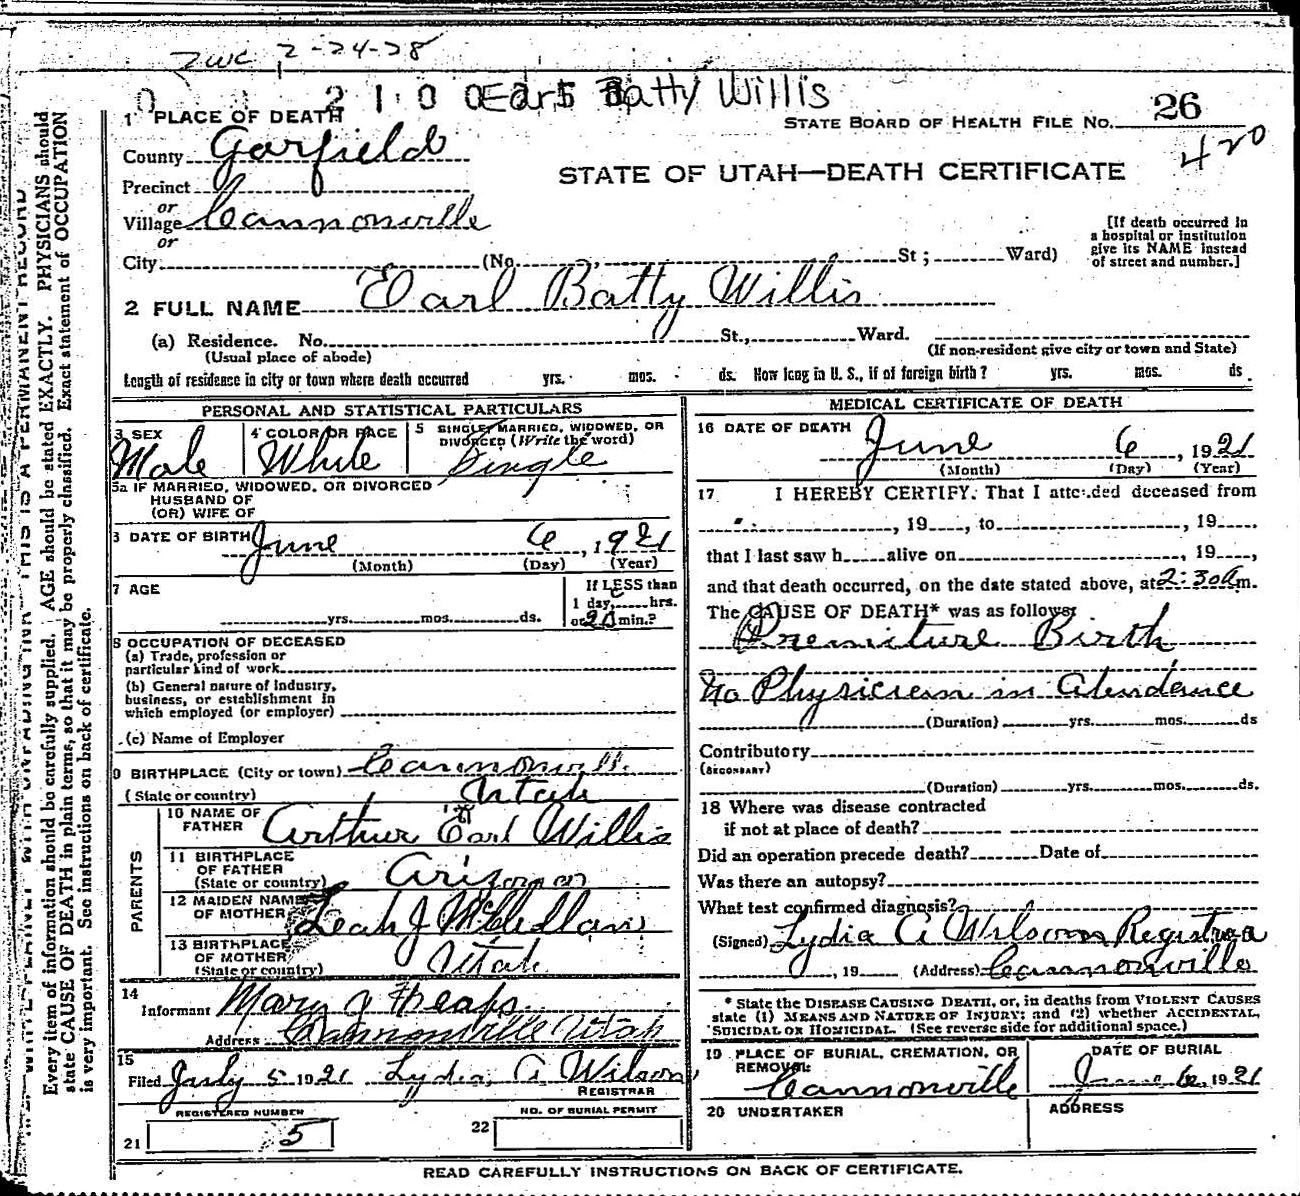 ZWC 2-24-28
0 2 1 0 0 Earl Batty Willis
STATE BOARD OF HEALTH FILE NO. 26
420
1 PLACE OF DEATH
County Garfield
STATE OF UTAH—DEATH CERTIFICATE
Precinct
or
Village Cannonville
or
City (No. St ; Ward)
[If death occurred in
a hospital or institution
give its NAME instead
of street and number.]
2 FULL NAME Earl Batty Willis
(a) Residence. No. St., Ward.
(Usual place of abode) (If non-resident give city or town and State)
Length of residence in city or town where death occurred yrs. mos. ds. How long in U. S., if of foreign birth? yrs. mos. ds.
PERSONAL AND STATISTICAL PARTICULARS
3 SEX
Male
4 COLOR OR RACE
White
5 SINGLE, MARRIED, WIDOWED, OR
DIVORCED (Write the word)
Single
5a IF MARRIED, WIDOWED, OR DIVORCED
HUSBAND OF
(OR) WIFE OF
DATE OF BIRTH June 6, 1921
(Month) (Day) (Year)
7 AGE
yrs. mos. ds.
If LESS than
1 day, hrs.
or 20 min.?
8 OCCUPATION OF DECEASED
(a) Trade, profession or
particular kind of work
(b) General nature of industry,
business, or establishment in
which employed (or employer)
(c) Name of Employer
9 BIRTHPLACE (City or town) Cannonvill.
(State or country) Utah
PARENTS
10 NAME OF
FATHER Arthur Earl Willis
11 BIRTHPLACE
OF FATHER
(State or country) Arizona
12 MAIDEN NAME
OF MOTHER Leah J
13 BIRTHPLACE
OF MOTHER
(State or country) Utah
14
Informant Mary J Heaps
Address Cannonville Utah
15
Filed July 5 1921 Lydia A Wilson
REGISTRAR
REGISTERED NUMBER
21 5
NO. OF BURIAL PERMIT
22
MEDICAL CERTIFICATE OF DEATH
16 DATE OF DEATH June 6, 1921
(Month) (Day) (Year)
17 I HEREBY CERTIFY. That I attended deceased from
, 19 , to , 19 ,
that I last saw h alive on , 19 ,
and that death occurred, on the date stated above, at 2:30 a m.
The CAUSE OF DEATH* was as follows:
Premiture Birth
No Physicieam in Atendance
(Duration) yrs. mos. ds
Contributory
(SECONDARY)
(Duration) yrs. mos. ds.
18 Where was disease contracted
if not at place of death?
Did an operation precede death? Date of
Was there an autopsy?
What test confirmed diagnosis?
(Signed) Lydia A Wilson Registra
, 19 (Address) Cannonville
* State the DISEASE CAUSING DEATH, or, in deaths from VIOLENT CAUSES
state (1) MEANS AND NATURE OF INJURY; and (2) whether ACCIDENTAL,
SUICIDAL OR HOMICIDAL. (See reverse side for additional space.)
19 PLACE OF BURIAL, CREMATION, OR
REMOVAL:
Cannonville
DATE OF BURIAL
June 6, 1921
20 UNDERTAKER
ADDRESS
READ CAREFULLY INSTRUCTIONS ON BACK OF CERTIFICATE.
THIS IS A PERMANENT RECORD
Every item of information should be carefully supplied. AGE should be stated EXACTLY. PHYSICIANS should
state CAUSE OF DEATH in plain terms, so that it may be properly classified. Exact statement of OCCUPATION
is very important. See instructions on back of certificate.